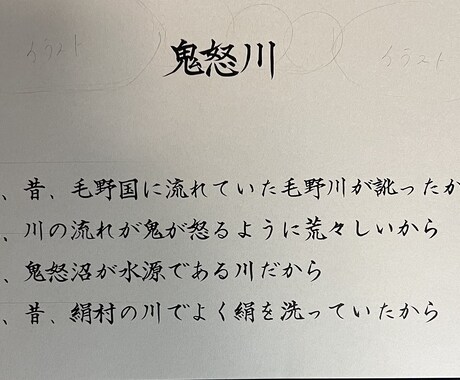 イラスト イラスト
鬼怒川
、昔、毛野国に流れていた毛野川が訛ったか
、川の流れが鬼が怒るように荒々しいから
、鬼怒沼が水源である川だから
、昔、絹村の川でよく絹を洗っていたから